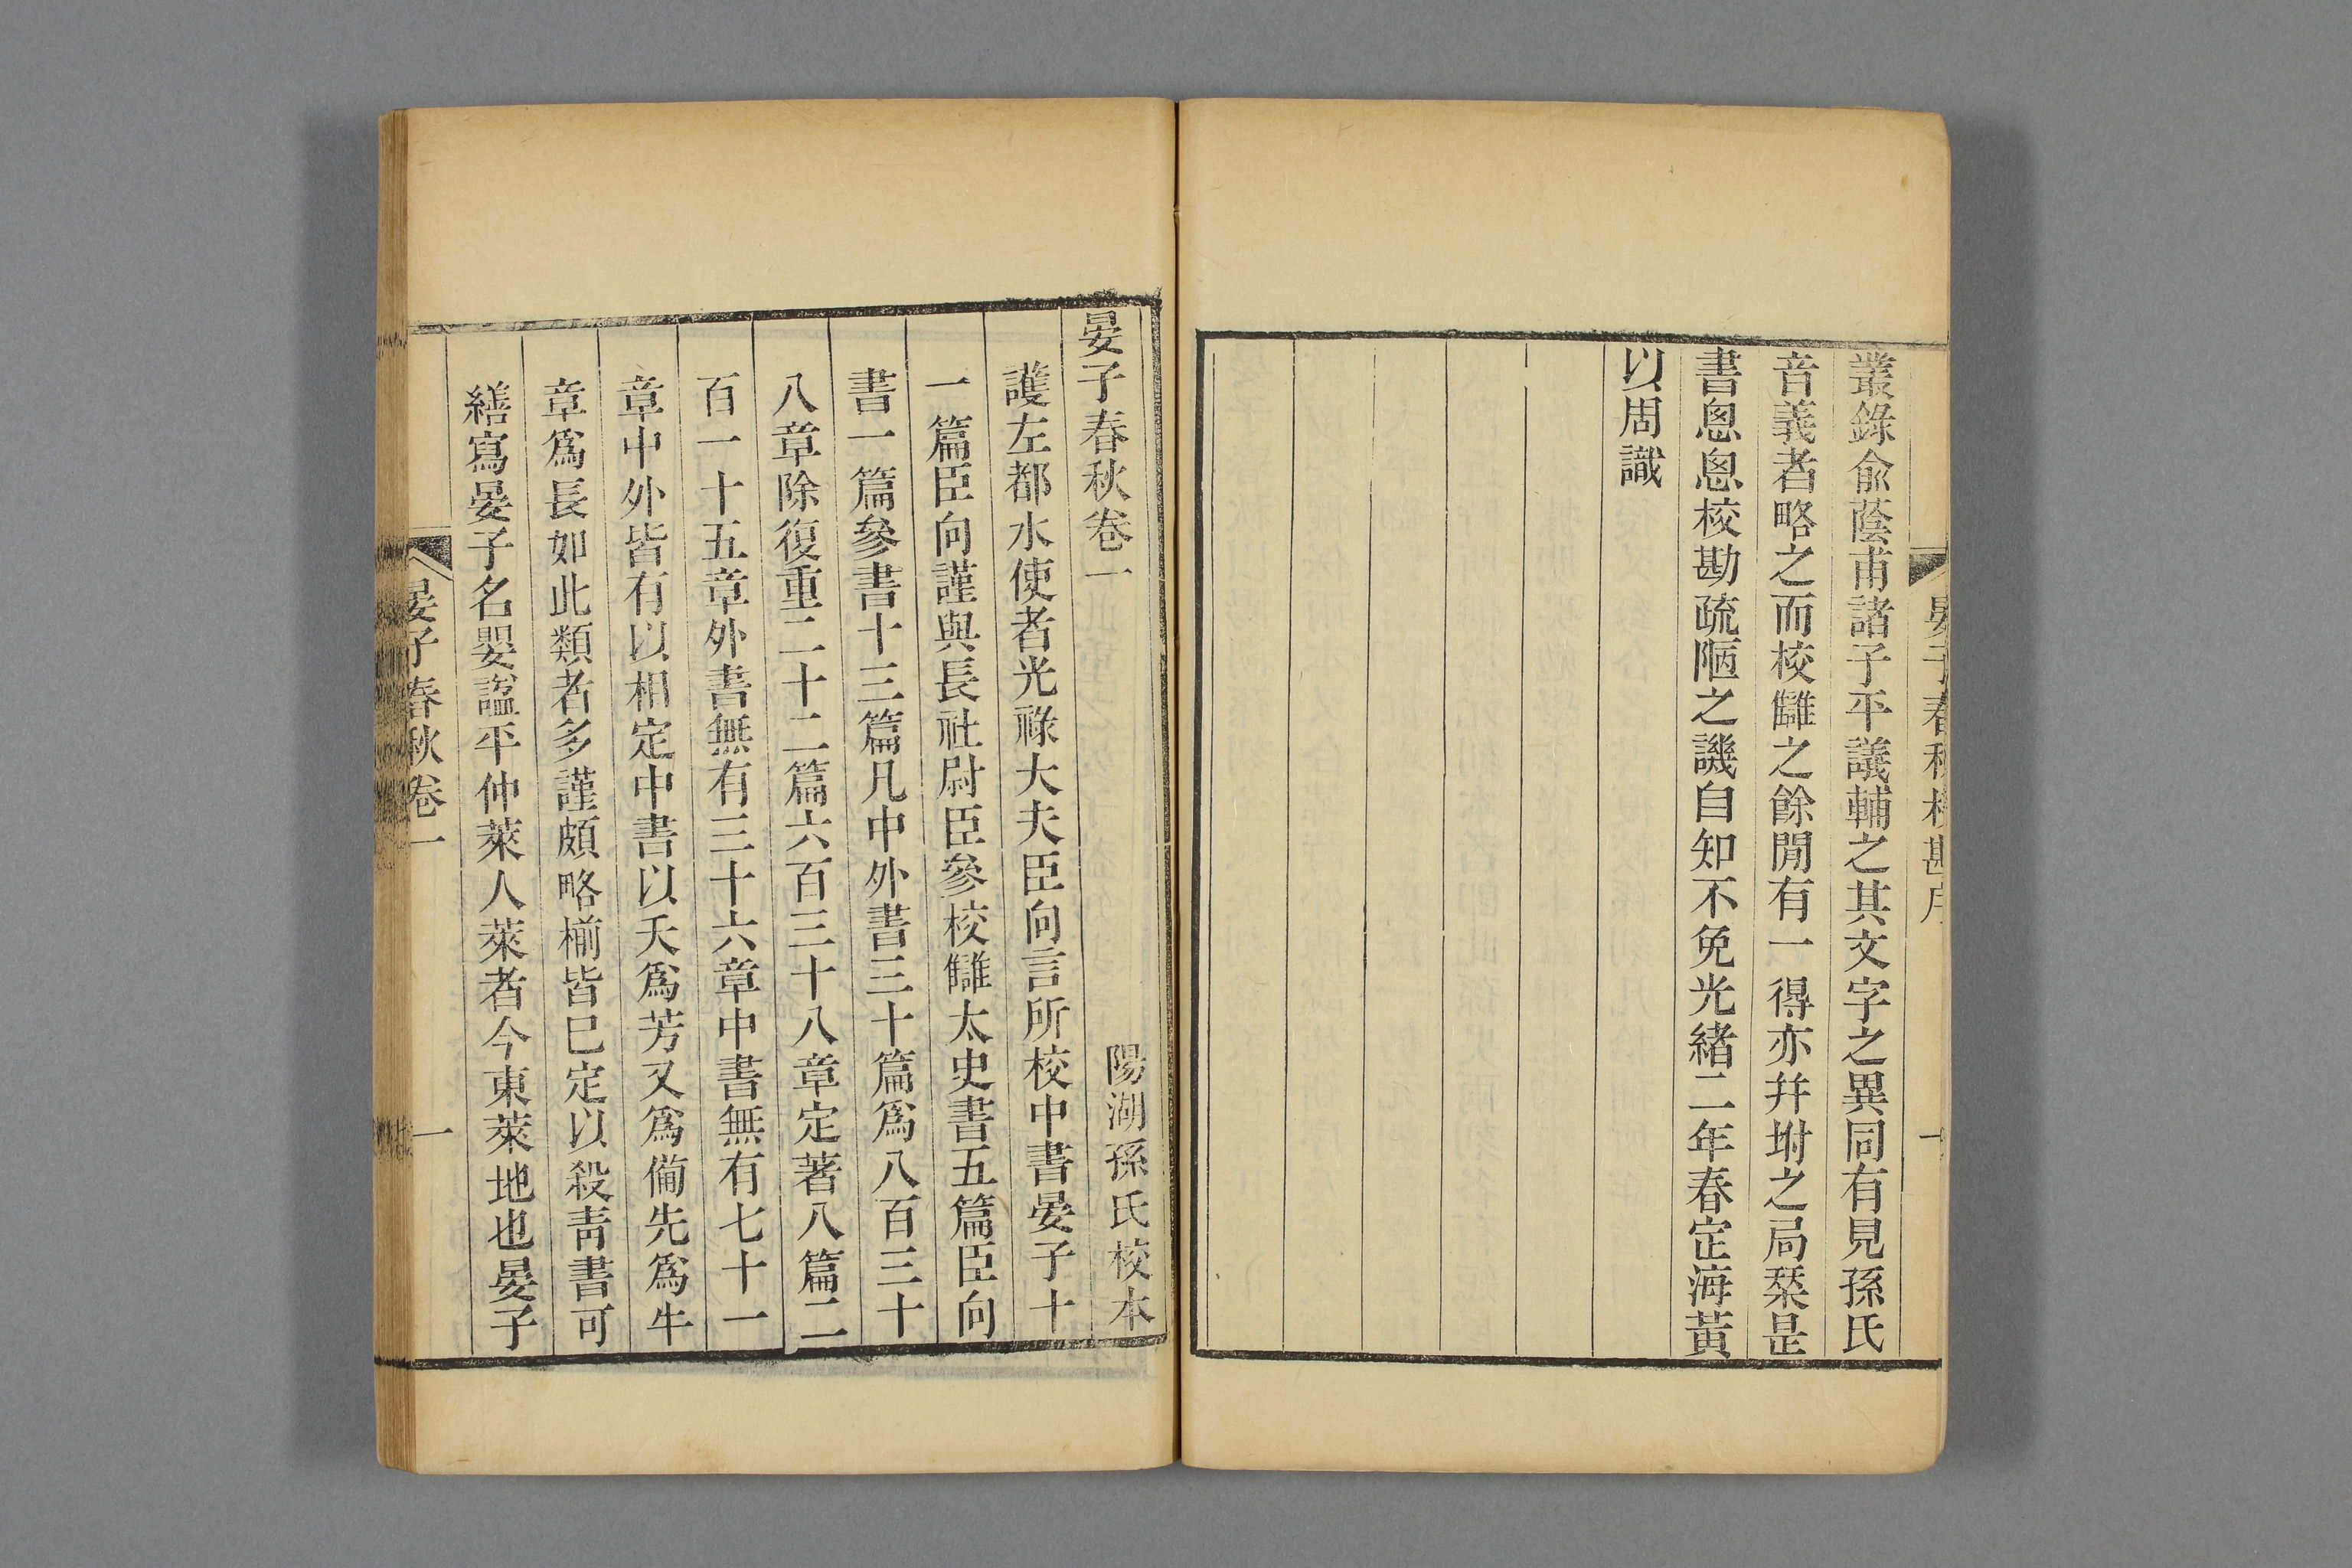 叢錄俞蔭甫諸子平議輔之其文字之異同有見孫氏
音義者略之而校讎之餘閒有一得亦幷坿之局槧是
書悤悤校勘疏陋之譏自知不免光緒二年春定海黃
以周識
晏子春秋卷一
陽湖孫氏校本
護左都水使者光祿大夫臣向言所校中書晏子十
一篇臣向謹與長社尉臣參校讎太史書五篇臣向
書一篇參書十三篇凡中外書三十篇爲八百三十
八章除復重二十二篇六百三十八章定著八篇二
百一十五章外書無有三十六章中書無有七十一
章中外皆有以相定中書以夭爲芳又爲備先爲牛
章爲長如此類者多謹頗略椾皆已定以殺靑書可
繕寫晏子名嬰謚平仲萊人萊者今東萊地也晏子
晏子春秋卷一
一